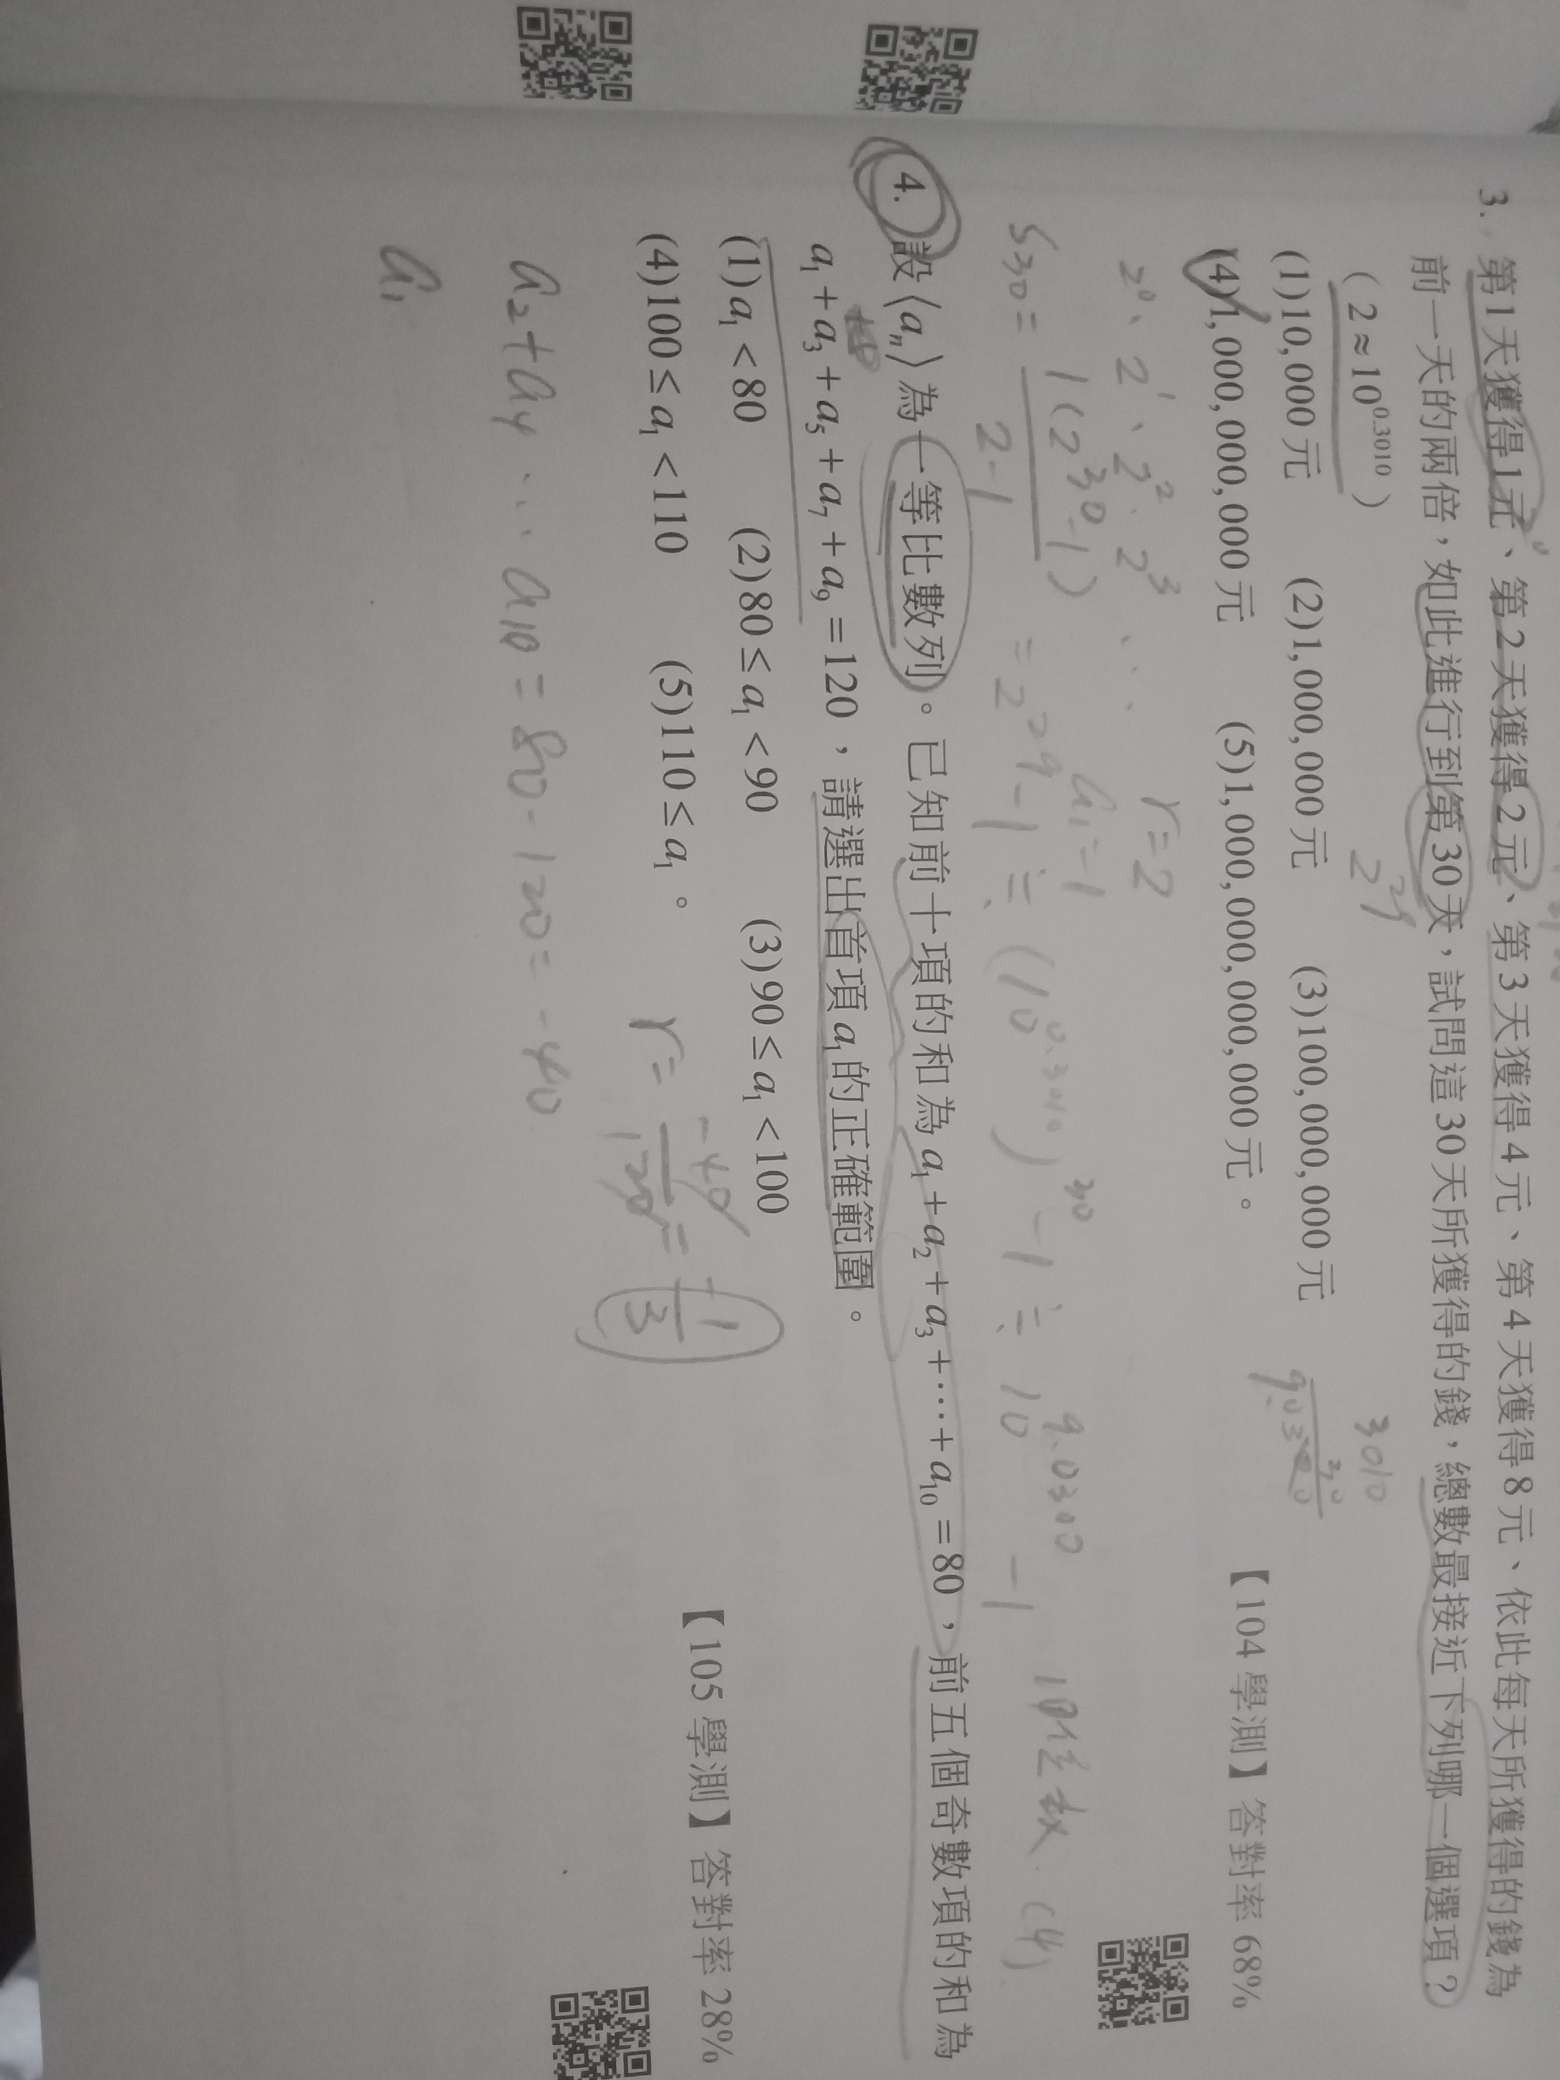 3. 第1天獲得1元、第2天獲得2元、第3天獲得4元、第4天獲得8元、依此每天所獲得的錢為
前一天的兩倍，如此進行到第30天，試問這30天所獲得的錢，總數最接近下列哪一個選項？
(2≈10^0.3010)
2^29
3010
30
(1)10,000元 (2)1,000,000元 (3)100,000,000元
(4)1,000,000,000元 (5)1,000,000,000,000元。
【104 學測】答對率 68%
2^0、2^1、2^2、2^3 ... r=2
a1=1
S30 = 1(2^30-1) / 2-1 = 2^29-1 ≒ (10^0.3010)^30 -1 ≒ 10^9.0300 -1 10位數 (4)
4. 設⟨an⟩為一等比數列。已知前十項的和為a1+a2+a3+⋯+a10=80，前五個奇數項的和為
a1+a3+a5+a7+a9=120，請選出首項a1的正確範圍。
(1)a1<80 (2)80≤a1<90 (3)90≤a1<100
(4)100≤a1<110 (5)110≤a1。
【105 學測】答對率 28%
r= -40/120 = -1/3
a2+a4...a10=80-120=-40
a1